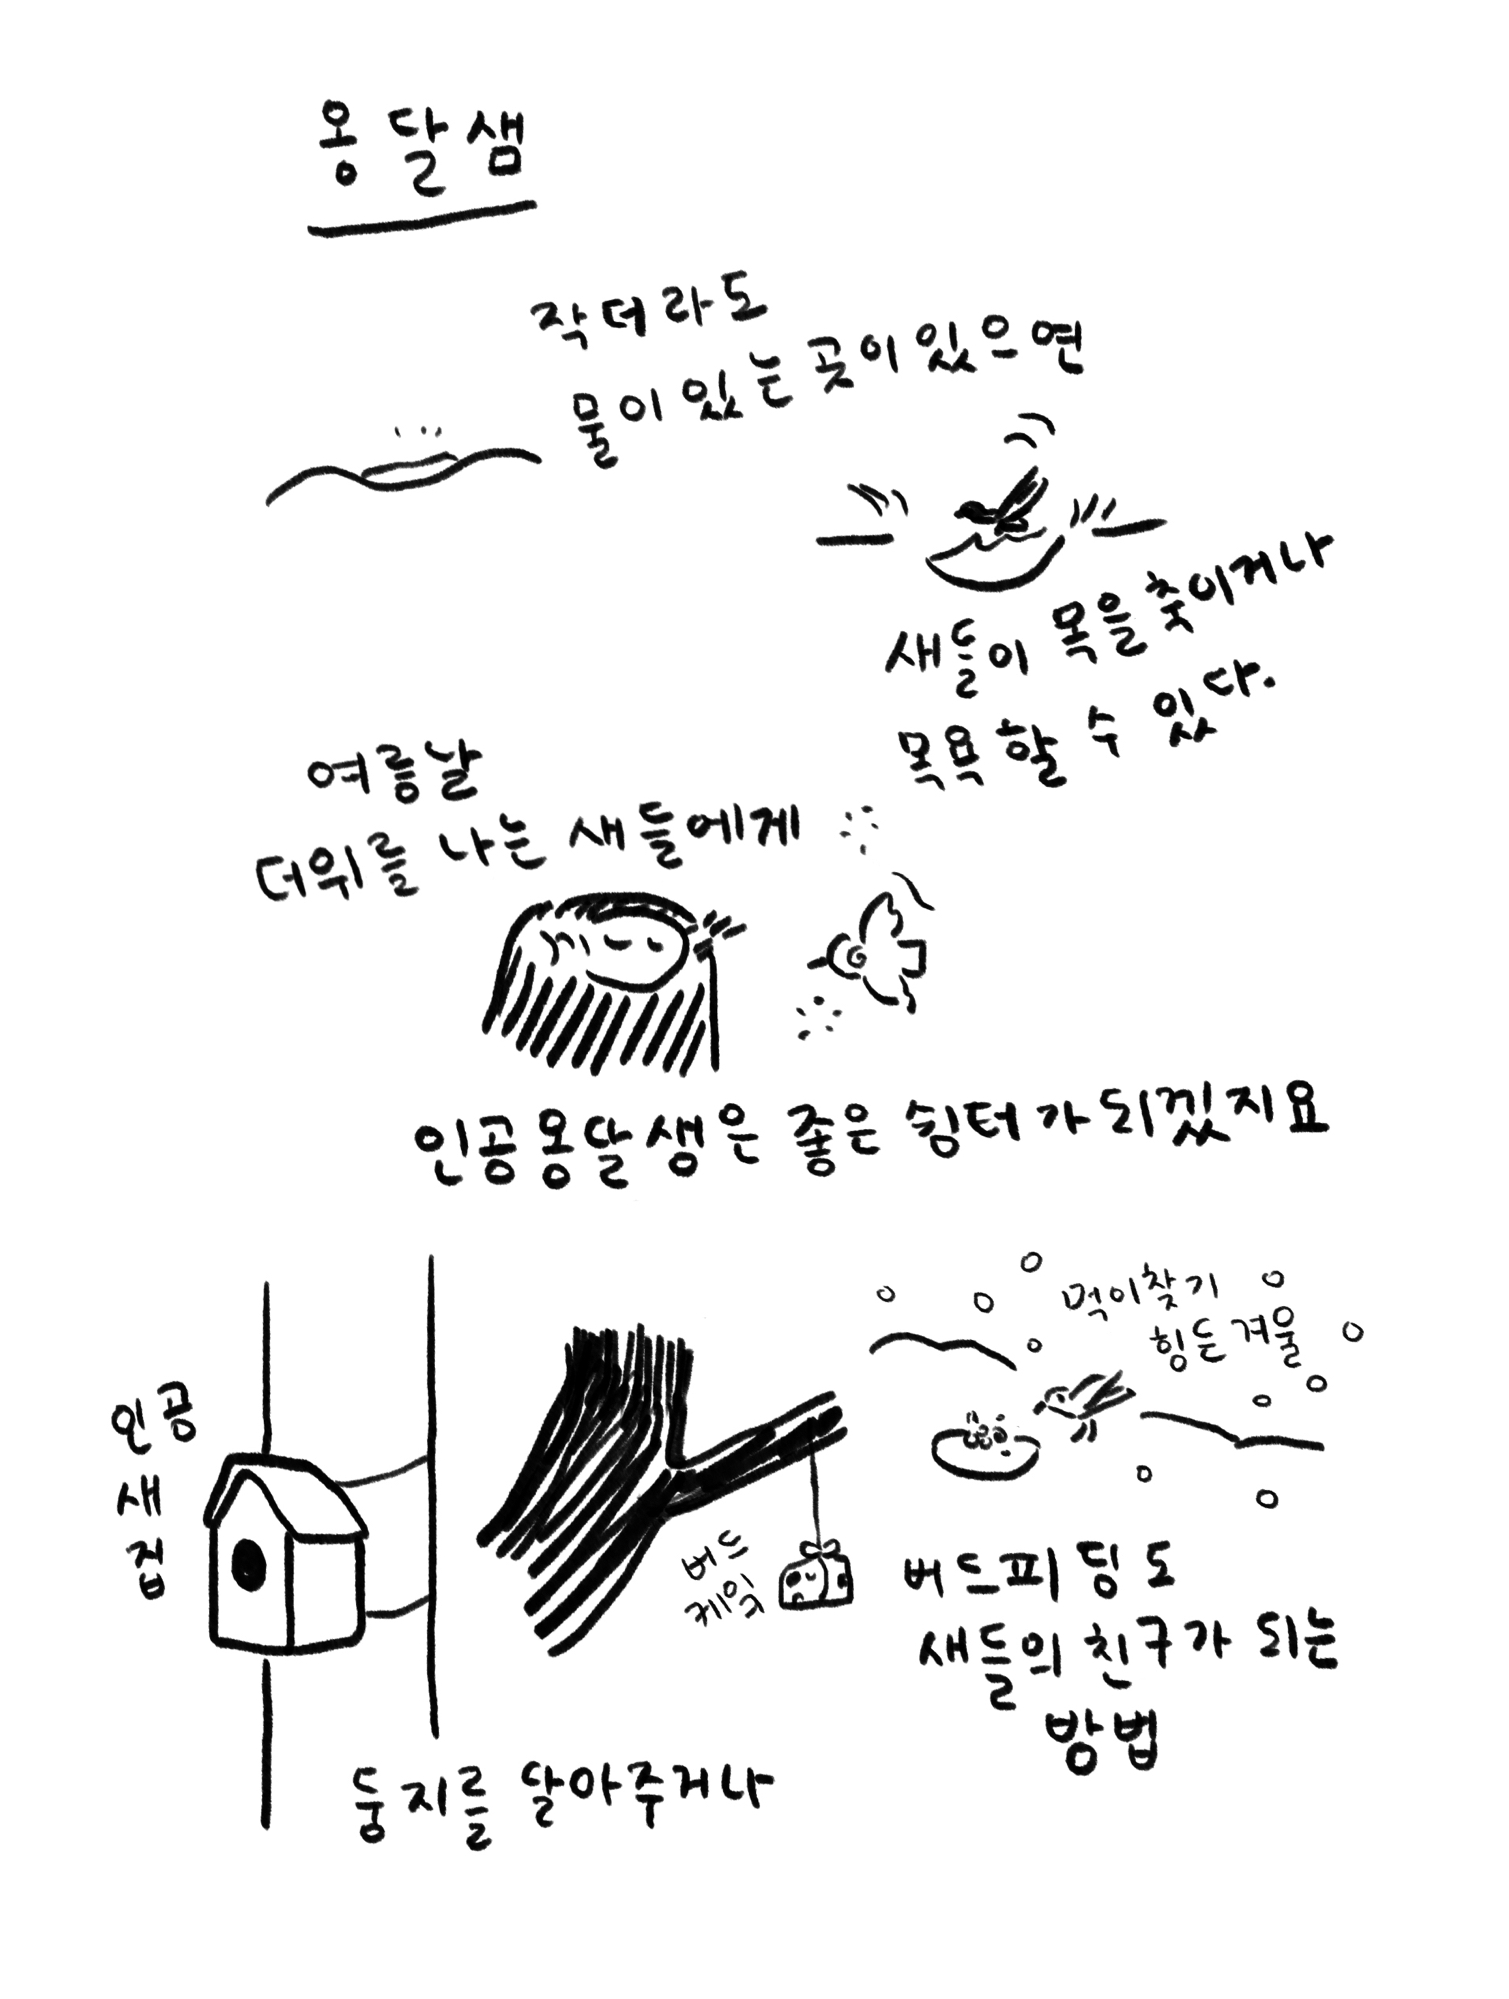 옹달샘
작더라도
물이 있는 곳이 있으면
새들이 목을 축이거나
목욕할 수 있다.
여름날
더위를 나는 새들에게
인공옹달샘은 좋은 쉼터가 되겠지요
인공
새
집
둥지를 달아주거나
버드
케잌
먹이찾기
힘든 겨울
버드피딩도
새들의 친구가 되는
방법